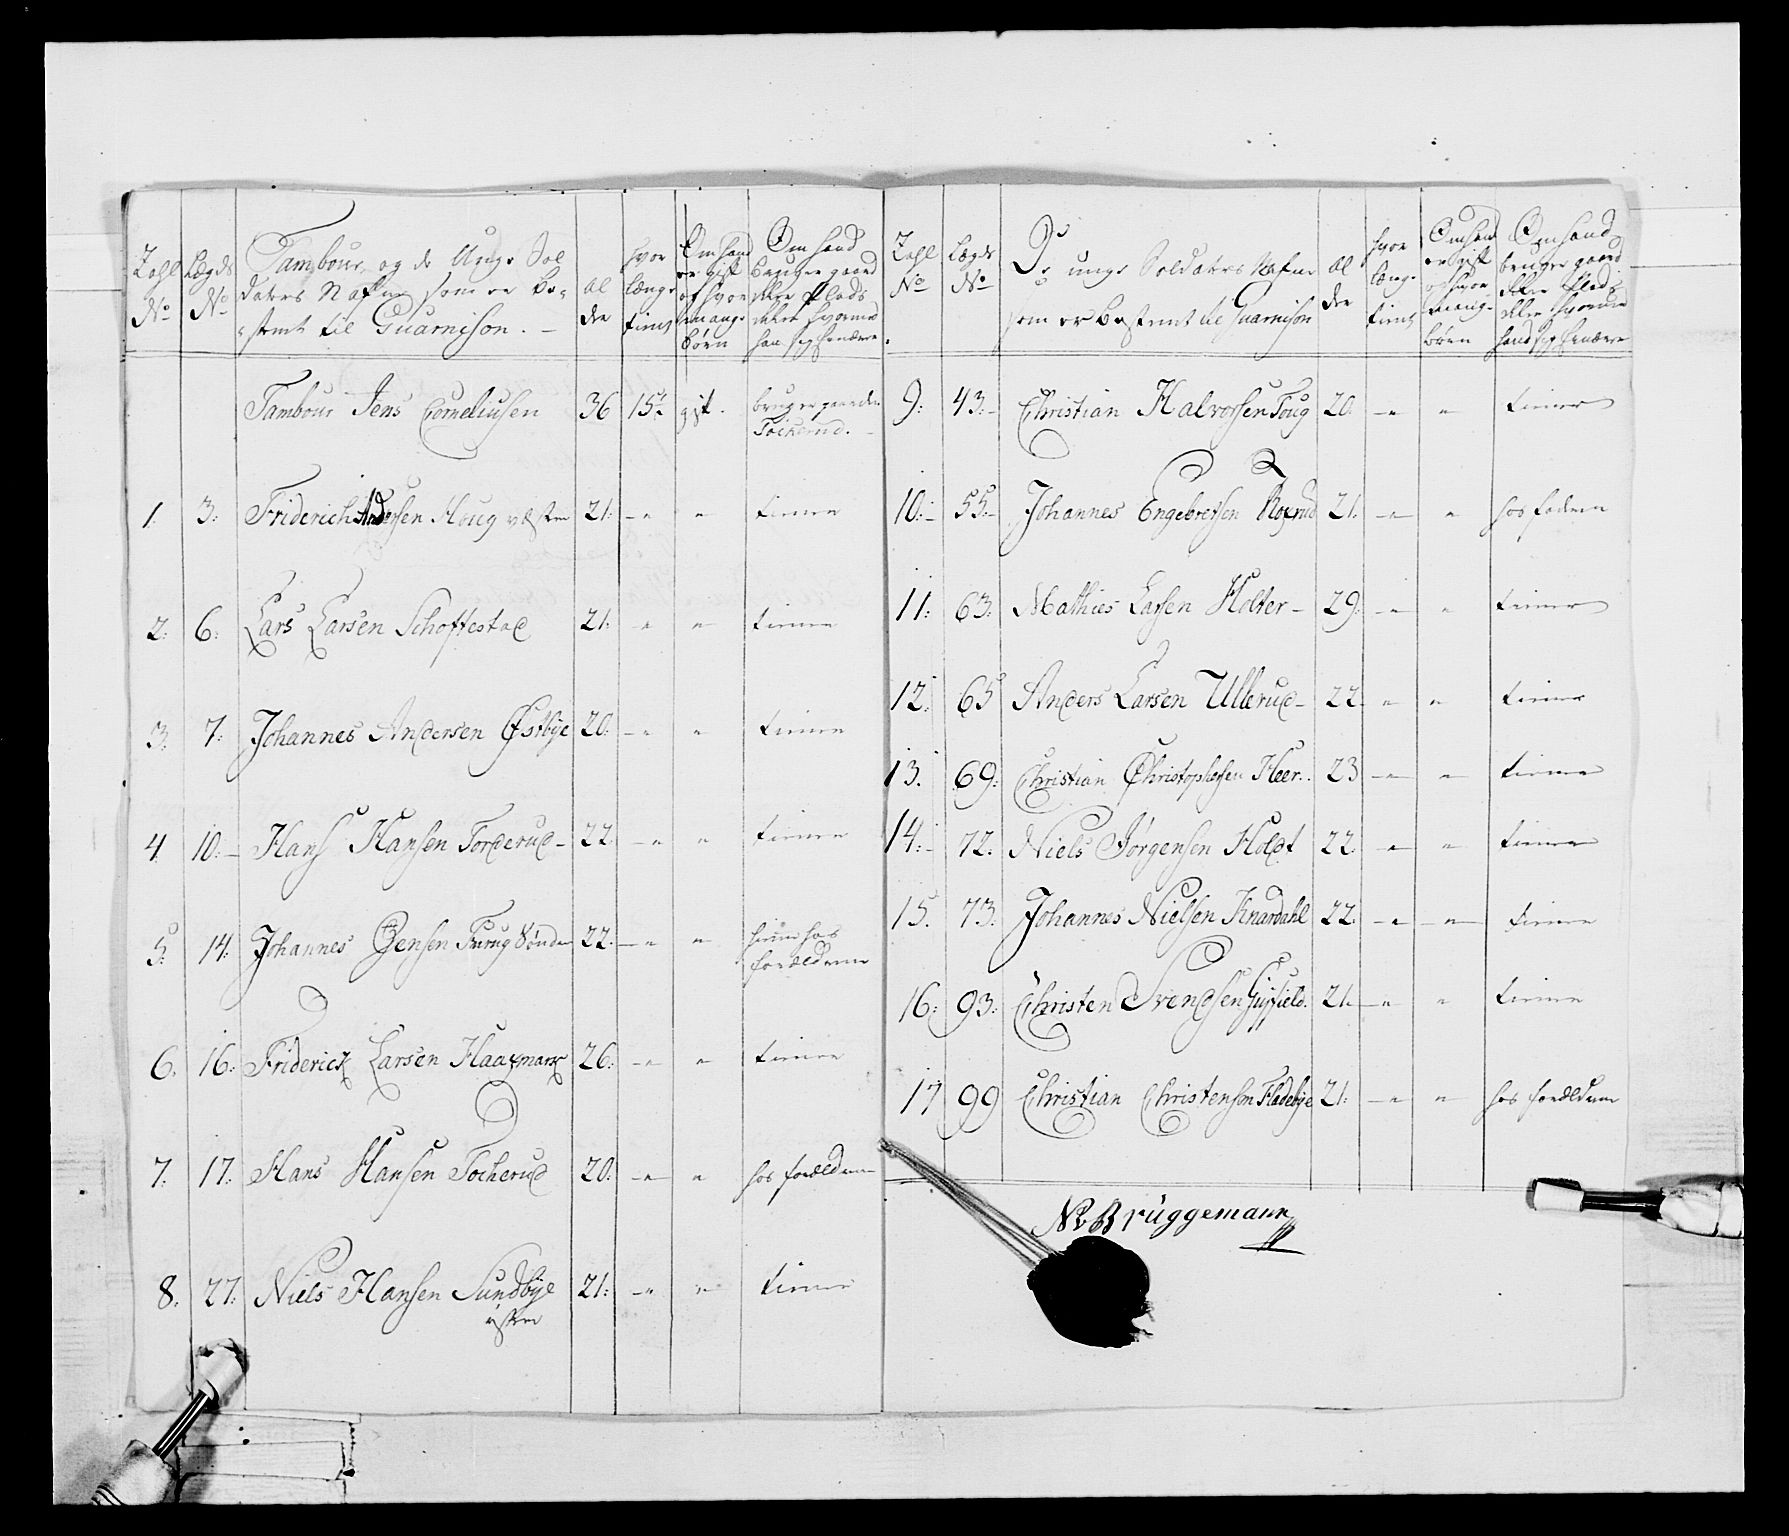 Zahl No
Lægds No
Tambour og de Unge Sol
daters Nafne som er be-
stemt til Guarnison. –
al
der
hvor
længe
tient
Om hand
er gift
og hvor
mange
børn
Om hand
bruger gaard
eller Plads
eller hvormed
han sig ernærer
Tambour Jens Corneliusen 36 15 gift. bruger gaarden
Tocherud.
1. 3: Friderich Andersen Houg vestre 21: – " " tiener
2: 6: Lars Larsen Schoftestad 21: " " tiener
3: 7: Johannes Andersen Østbye 20: – " " tiener
4 10: – Hans Hansen Torderud – 22: – " " tiener
5: 14: Johannes Jensen Furug Sønder 22: – " " hiemme hos
forældrene
6. 16: Friderick Larsen Haaxmark 26: – " " tiener
7: 17: Hans Hansen Tocherud 20: – " " hos forældrene
8. 27: Niels Hansen Sundbye 21: – " " tiener
østre
Zahl No
Lægds No
De unge Soldaters Nafne
som er bestemt til Guarnison
al
der
hvor
længe
tient
Om hand
er gift
og hvor
mange
børn
Om hand
bruger gaard
eller Plads
eller hvormed
hand sig ernærer
9: 43: – Christian Halvorsen Toug 20. – " " tiener
10: – 55: – Johannes Engebretsen Roxrud 21: – " " hos faderen
11: 63: Mathies Larsen Holter – 29: – " " tiener
12: 65 Anders Larsen Ullerud – 22. " " tiener
13. 69: Christian Christophersen Heer. 23 – " " tiener
14: – 72. Niels Jørgensen Holdt 22. – " " tiener
15. 73. Johannes Nielsen Knardahl 22. – " " tiener
16: 93: Christen Svendsen 21. – " " tiener
17 99 Christian Christenson Fladebye 21: – " " hos forældrene
Brüggemann